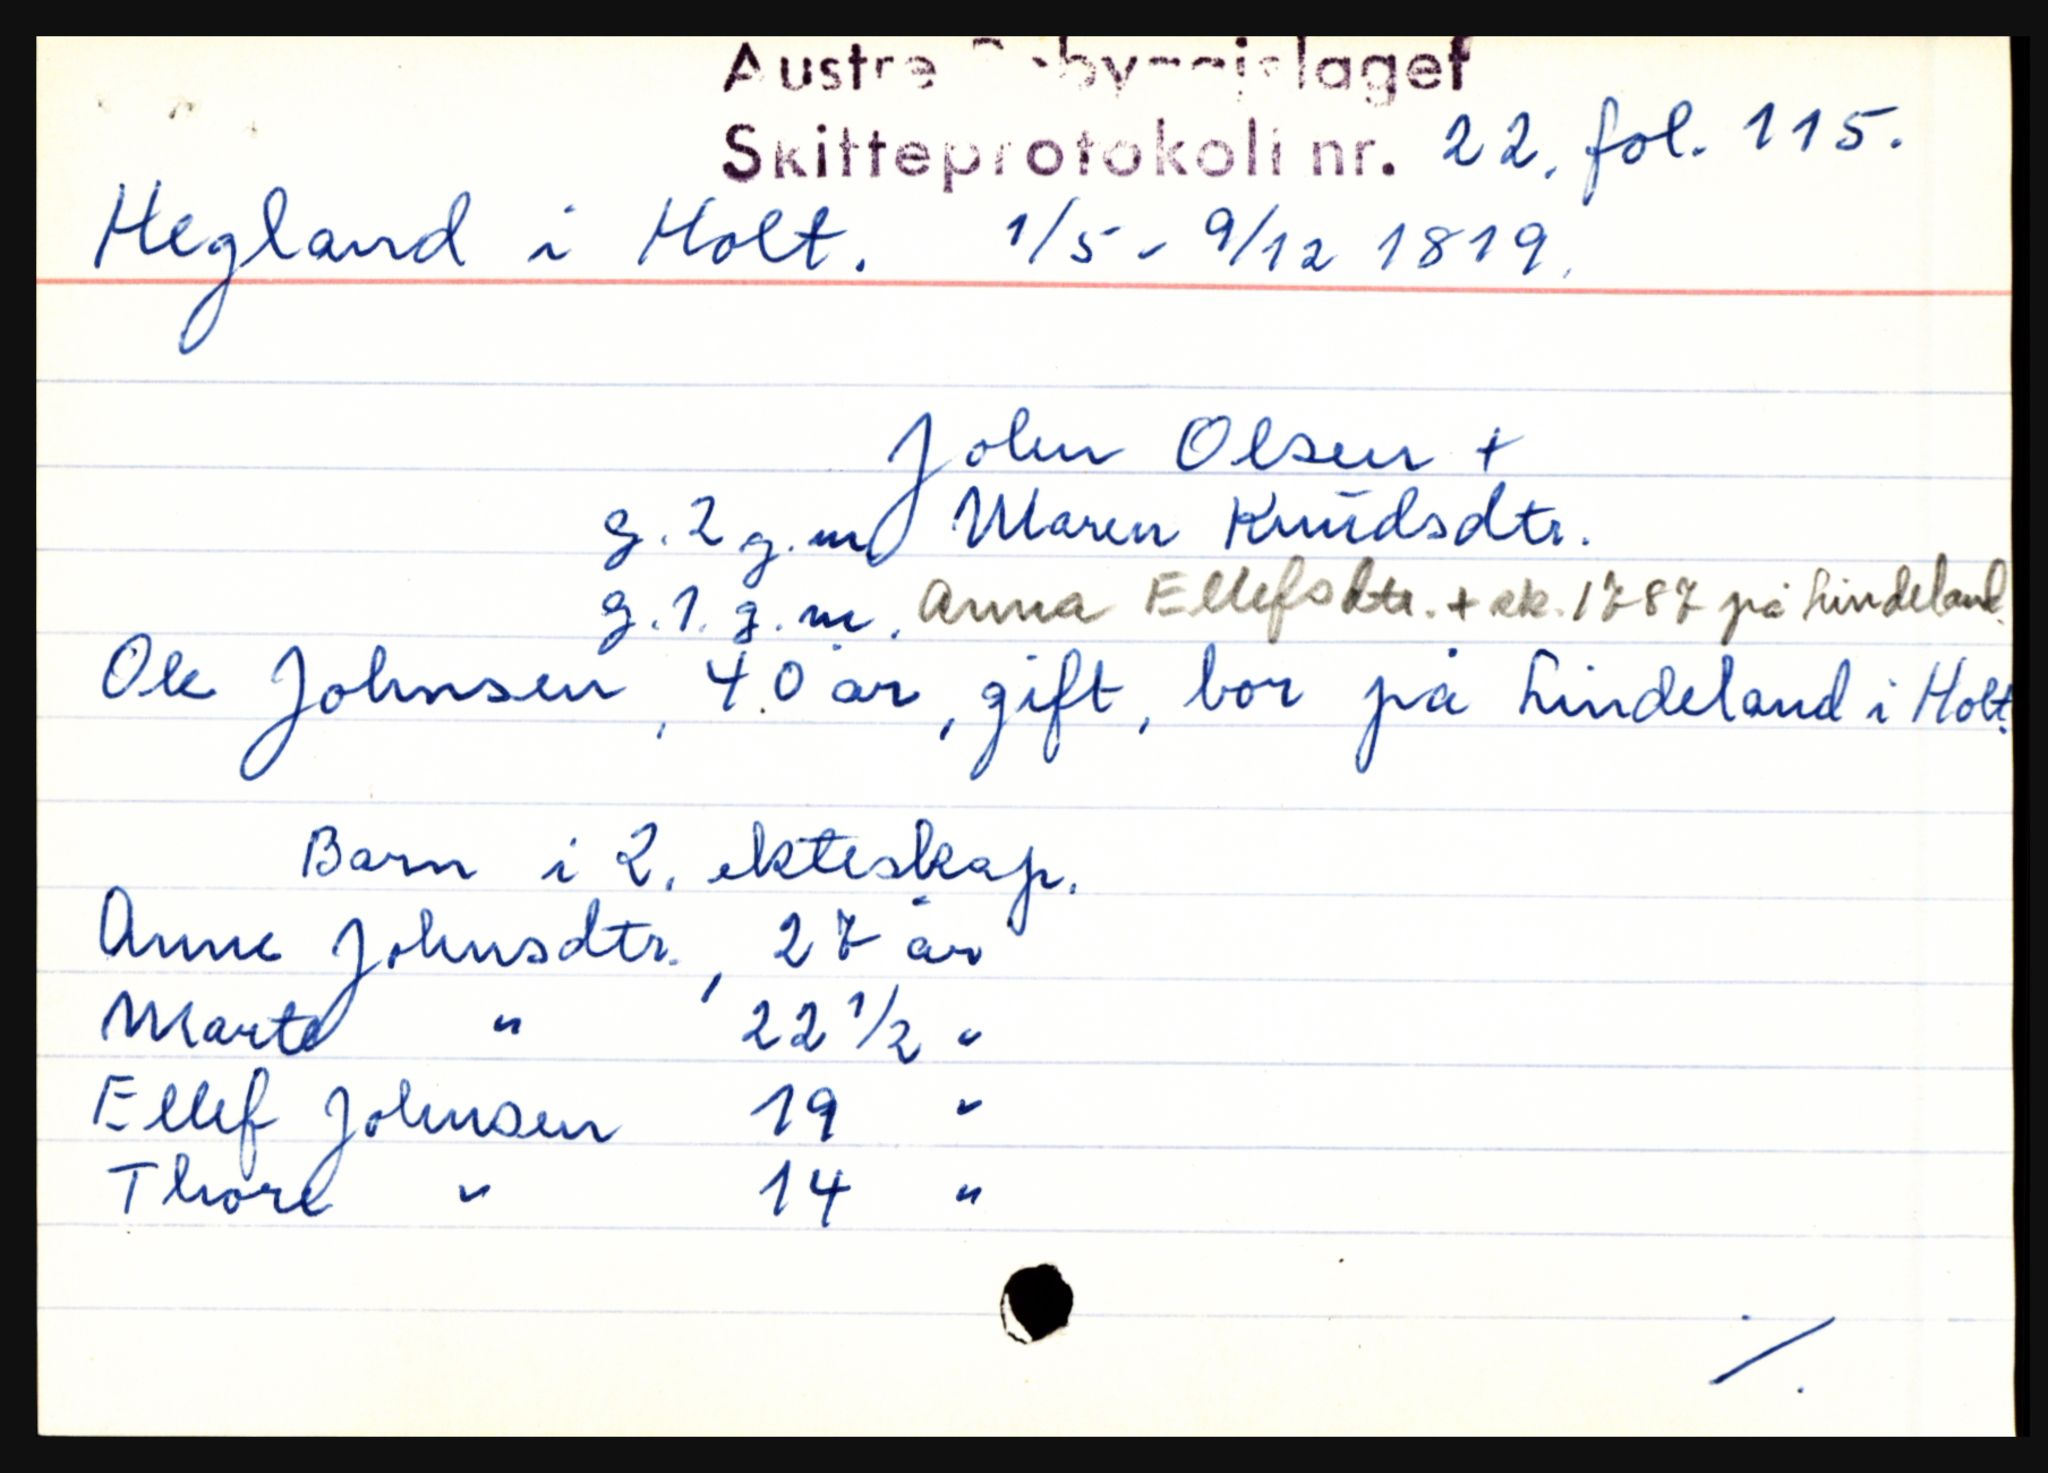 Austre Robyggjelaget
Skifteprotokoll nr. 22. fol. 115.
Hegland i Holt. 1/5 - 9/12 1819.
John Olsen +
g. 2 g. m. Maren Knudsdtr.
g. 1. g. m. Anna Ellefsdtr. + sk. 1787 på Lindeland.
Ole Johnsen, 40 år, gift, bor på Lindeland i Holt.
Barn i 2. ekteskap.
Anne Johnsdtr., 27 år
Marte " 22 1/2 "
Ellef Johnsen 19 "
Thore " 14 "
/.